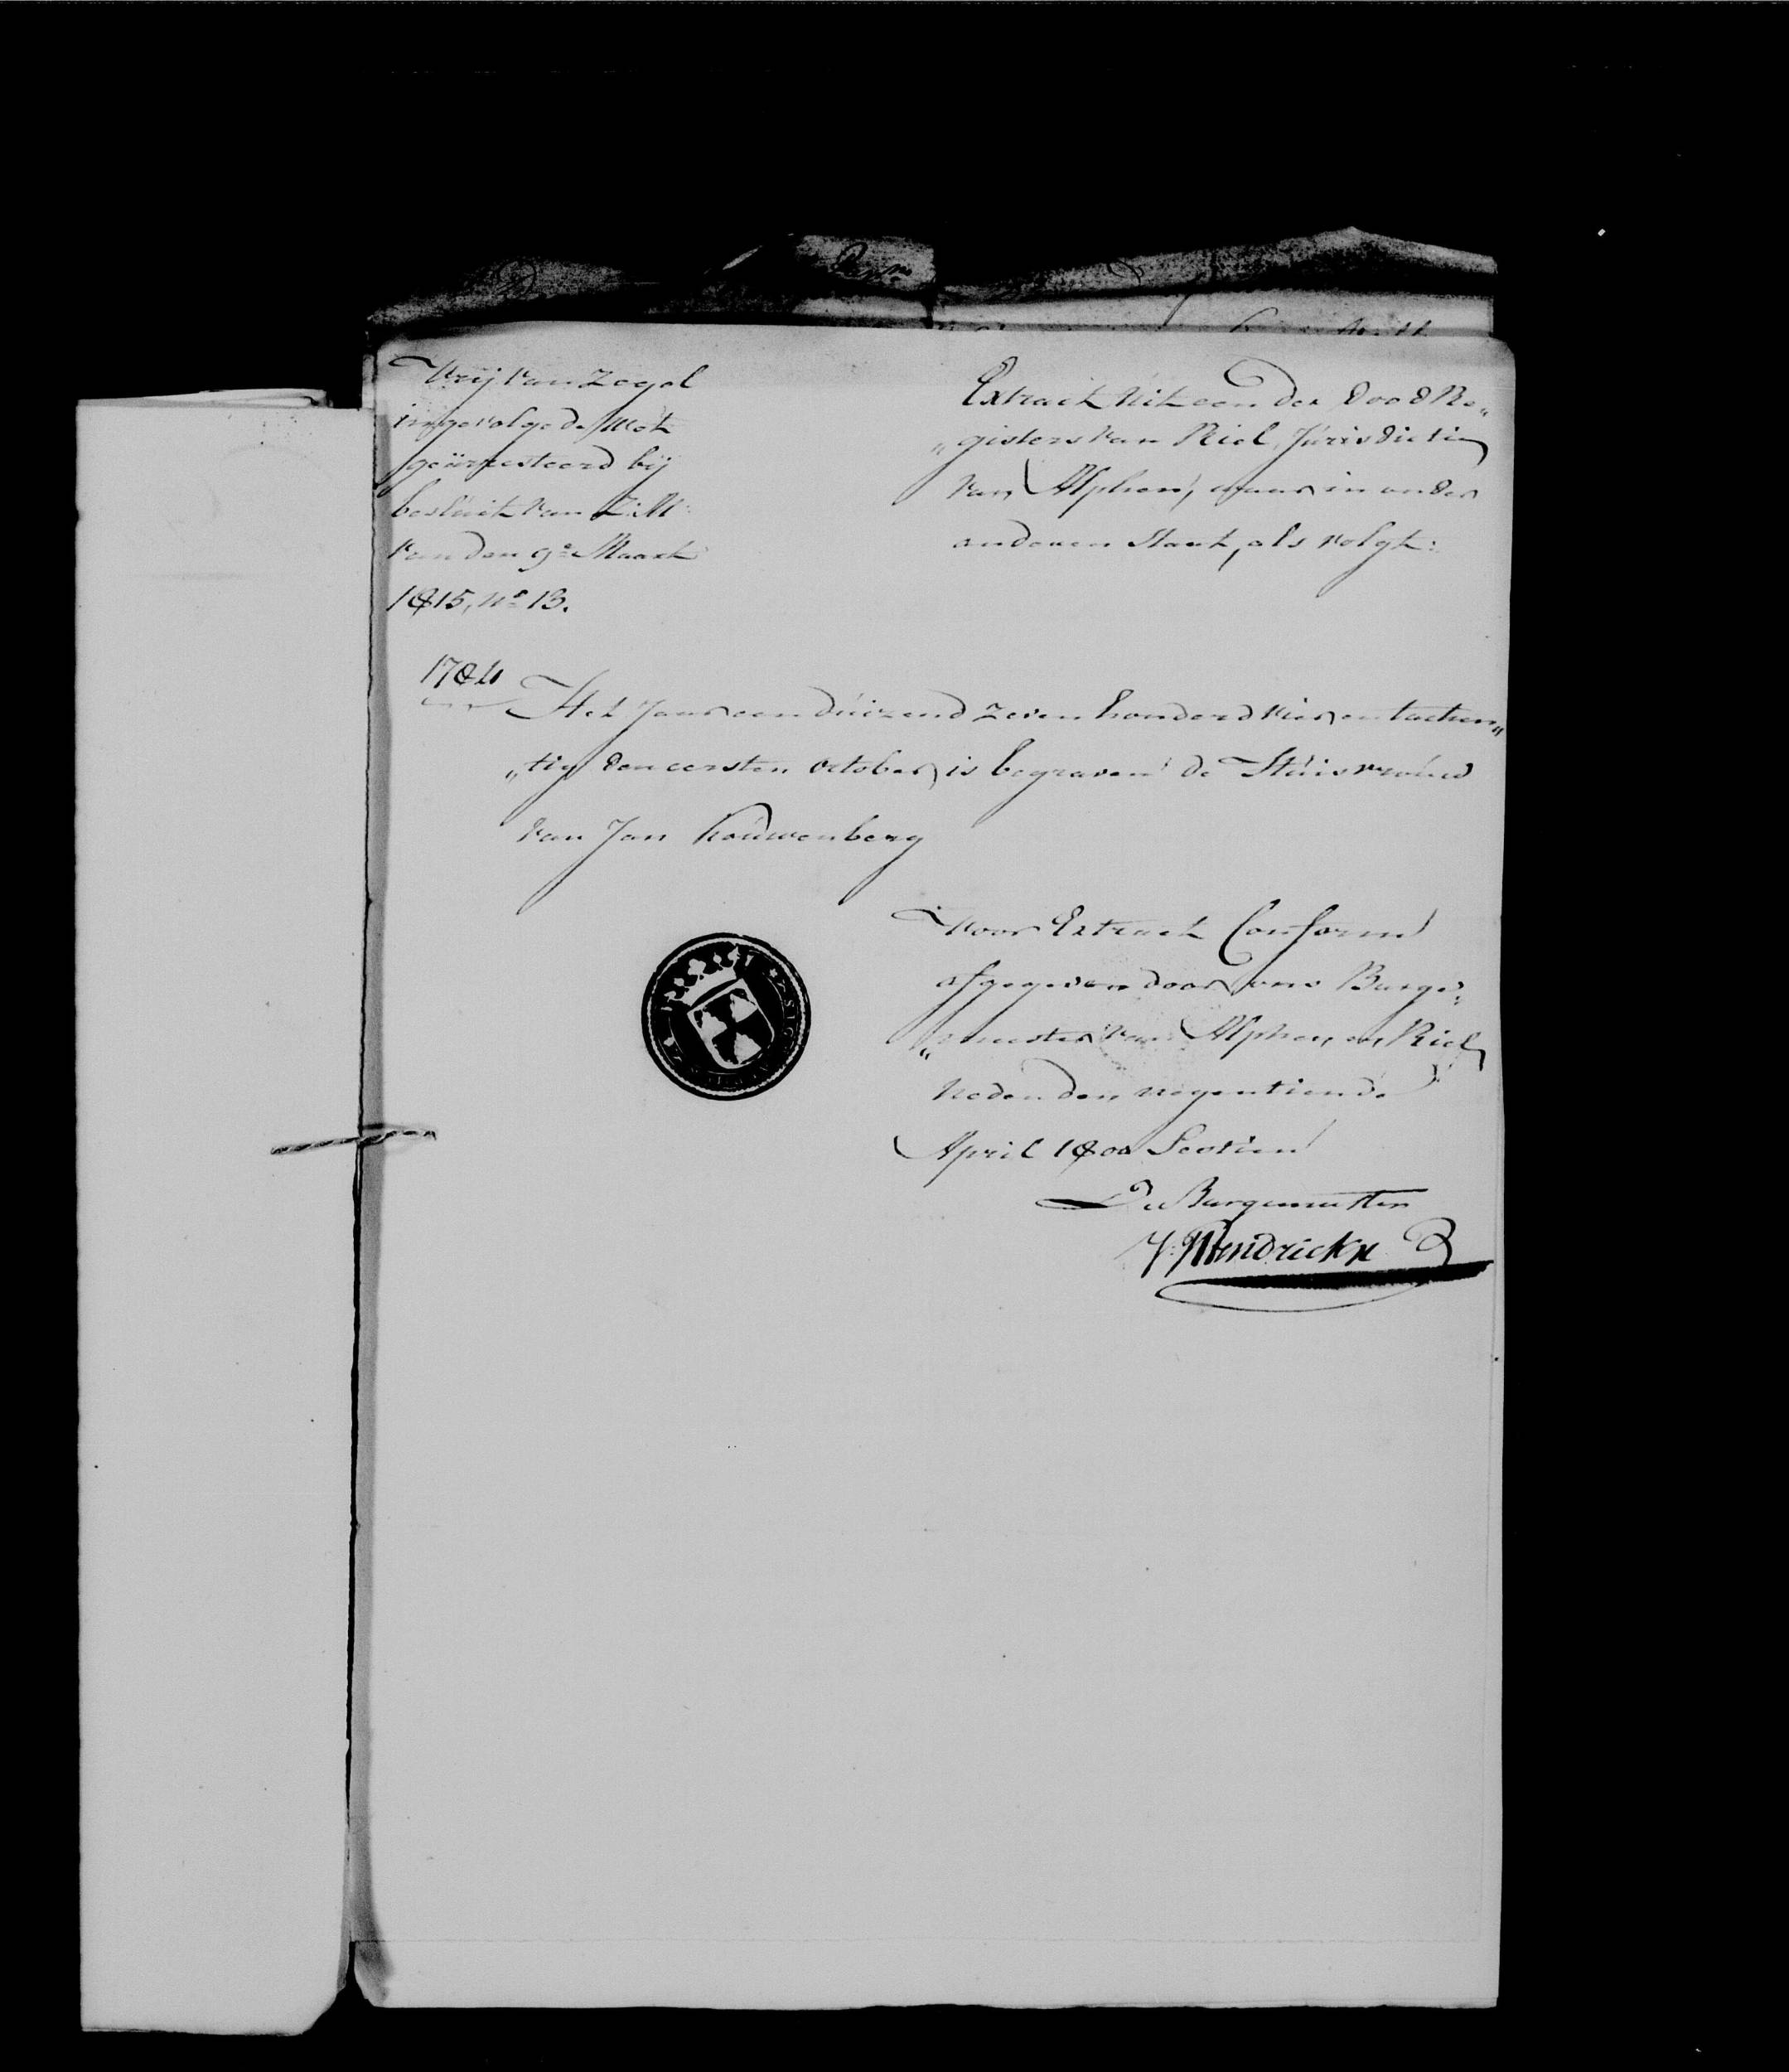 Vrij van Zegel
ingevolge de Wet
gearresteerd bij
besluit van Z:M:
van den 9e Maart
1815, No 13.
Extract Uit een der Dood Re„
„gisters van Riel, Jurisdictie
van Alphen, waar in onder
anderen Staat, als volgt:
1784
Het Jaar een duizend zeven honderd vier en tachen„
„tig den eersten October is begraven de Huisvrouw
van Jan Kouwenberg
Voor Extract Conform
afgegeven door ons Burge„
„meester van Alphen en Riel
heden den negentiende
April 1800 Sestien
De Burgemeester
J: Hendrickx